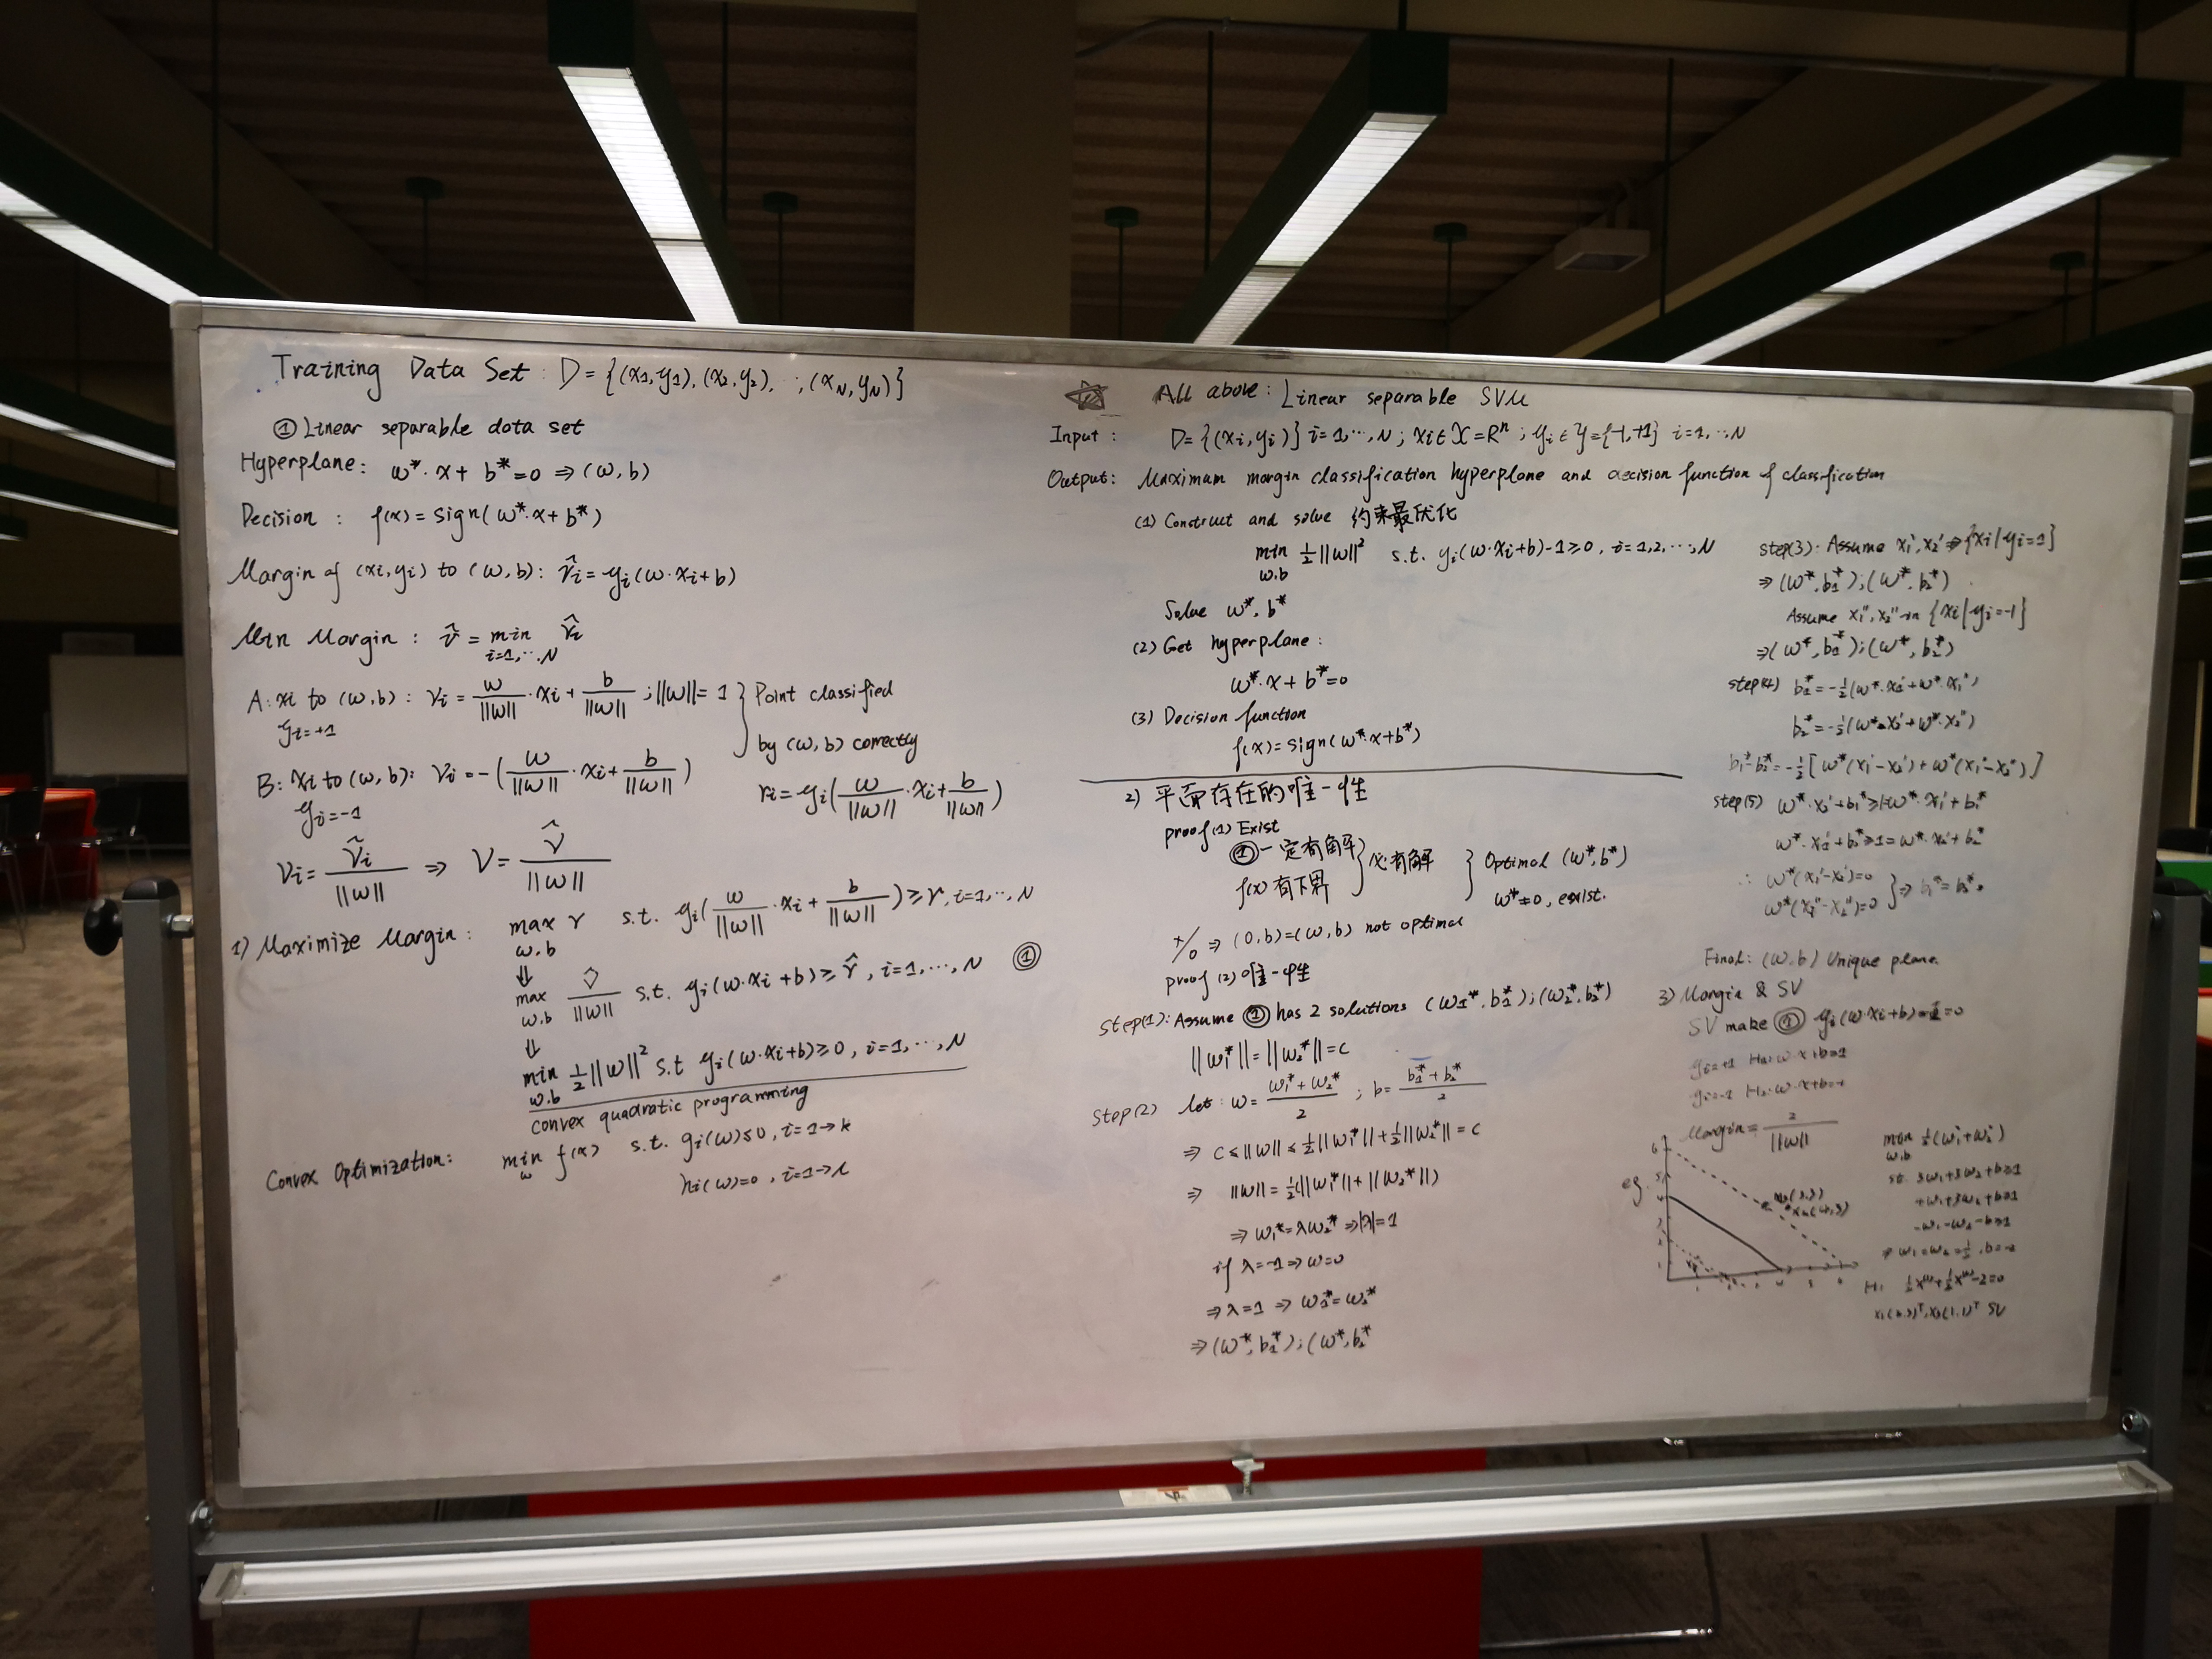 Training Data Set : D = {(x1,y1), (x2,y2), ..., (xN,yN)}
① Linear separable data set
Hyperplane: w*·x + b* = 0 ⇒ (w,b)
Decision : f(x) = sign(w*·x + b*)
Margin of (xi,yi) to (w,b): γ̂i = yi(w·xi+b)
Min Margin : γ̂ = min i=1,...,N γ̂i
A: xi to (w,b) : γi = w/||w|| · xi + b/||w|| ; ||w|| = 1 } Point classified
yi=+1
by (w,b) correctly
B: xi to (w,b): γi = -(w/||w|| · xi + b/||w||)
yi=-1
ri = yi(w/||w|| · xi + b/||w||)
γi = γ̂i/||w|| ⇒ γ = γ̂/||w||
1) Maximize Margin : max w.b γ s.t. yi(w/||w|| · xi + b/||w||) ≥ γ, i=1,...,N
⇓
max w.b γ̂/||w|| s.t. yi(w·xi+b) ≥ γ̂, i=1,...,N ①
⇓
min w.b 1/2||w||² s.t yi(w·xi+b) ≥ 0, i=1,...,N
convex quadratic programming
Convex Optimization: min w f(x) s.t. gi(w) ≤ 0, i=1→k
hi(w)=0, i=1→l
All above: Linear separable SVM
Input : D = {(xi,yi)} i=1,...,N ; xi ∈ X = R^n ; yi ∈ Y = {-1,+1} i=1,...,N
Output: Maximum margin classification hyperplane and decision function of classification
(1) Construct and solve 约束最优化
min w.b 1/2||w||² s.t. yi(w·xi+b)-1≥0, i=1,2,...,N
Solve w*, b*
(2) Get hyperplane :
w*·x + b* = 0
(3) Decision function
f(x) = sign(w*·x+b*)
2) 平面存在的唯一性
proof(1) Exist
①一定有解 } 必有解 } Optimal (w*,b*)
f(x)有下界
w*≠0, exist.
+/0 ⇒ (0,b)=(w,b) not optimal
proof (2) 唯一性
Step(1): Assume ① has 2 solutions (w1*,b1*);(w2*,b2*)
||w1*|| = ||w2*|| = c
Step(2) let: w = (w1*+w2*)/2 ; b = (b1*+b2*)/2
⇒ c ≤ ||w|| ≤ 1/2||w1*|| + 1/2||w2*|| = c
⇒ ||w|| = 1/2(||w1*|| + ||w2*||)
⇒ w1* = λw2* ⇒ |λ| = 1
if λ=-1 ⇒ w=0
⇒ λ=1 ⇒ w1*=w2*
⇒ (w*,b1*);(w*,b2*
step(3): Assume x1',x2' ⇒ {xi|yi=1}
⇒ (w*,b1*);(w*,b2*)
Assume x1'',x2'' in {xi|yi=-1}
⇒ (w*,b1*);(w*,b2*)
step(4) b1* = -1/2(w*·x1'+w*·x1'')
b2* = -1/2(w*·x2'+w*·x2'')
b1*-b2* = -1/2[w*(x1'-x2')+w*(x1''-x2'')]
step(5) w*·x2'+b1*≥1=w*·x1'+b1*
w*·x1'+b2*≥1=w*·x2'+b2*
∴ w*(x1'-x2')=0
w*(x1''-x2'')=0 } ⇒ b1*=b2*.
Final: (w,b) Unique plane.
3) Margin & SV
SV make ① yi(w·xi+b)-1=0
yi=+1 H1: w·x+b=1
yi=-1 H2: w·x+b=-1
Margin = 2/||w||
eg.
min w.b 1/2(w1²+w2²)
st. 3w1+3w2+b≥1
4w1+3w2+b≥1
-w1-w2-b≥1
⇒ w1=w2=1/2, b=-2
x1(3,3)
x2(4,3)
H: 1/2x⁽¹⁾+1/2x⁽²⁾-2=0
x1(3,3)ᵀ, x3(1,1)ᵀ SV